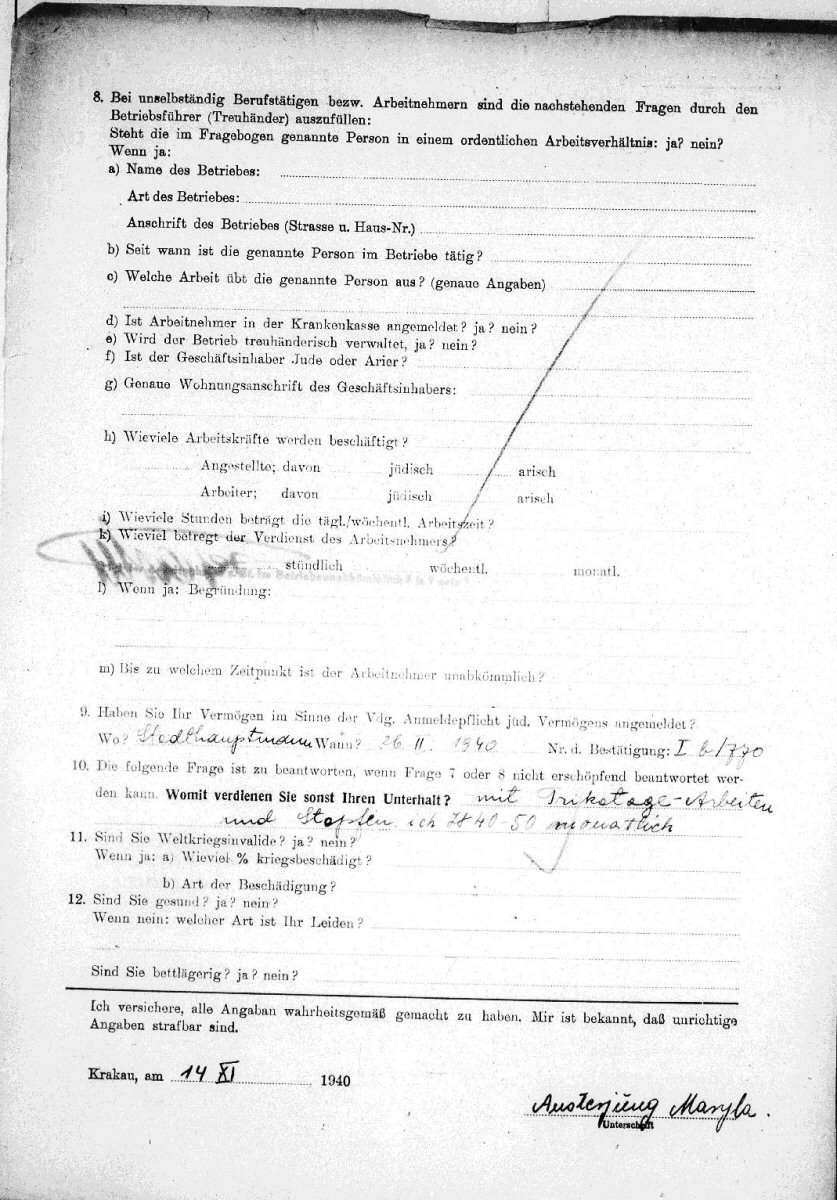 8. Bei unselbständig Berufstätigen bezw. Arbeitnehmern sind die nachstehenden Fragen durch den
Betriebsführer (Treuhänder) auszufüllen:
Steht die im Fragebogen genannte Person in einem ordentlichen Arbeitsverhältnis: ja? nein?
Wenn ja:
a) Name des Betriebes:
Art des Betriebes:
Anschrift des Betriebes (Strasse u. Haus-Nr.)
b) Seit wann ist die genannte Person im Betriebe tätig?
c) Welche Arbeit übt die genannte Person aus? (genaue Angaben)
d) Ist Arbeitnehmer in der Krankenkasse angemeldet? ja? nein?
e) Wird der Betrieb treuhänderisch verwaltet, ja? nein?
f) Ist der Geschäftsinhaber Jude oder Arier?
g) Genaue Wohnungsanschrift des Geschäftsinhabers:
h) Wieviele Arbeitskräfte werden beschäftigt?
Angestellte; davon jüdisch arisch
Arbeiter; davon jüdisch arisch
i) Wieviele Stunden beträgt die tägl./wöchentl. Arbeitszeit?
k) Wieviel betregt der Verdienst des Arbeitsnehmers?
stündlich wöchentl. monatl.
l) Wenn ja: Begründung:
m) Bis zu welchem Zeitpunkt ist der Arbeitnehmer unabkömmlich?
9. Haben Sie Ihr Vermögen im Sinne der Vdg. Anmeldepflicht jüd. Vermögens angemeldet?
Wo? Stadthauptmann Wann? 26 II. 1940 Nr. d. Bestätigung: I b/770
10. Die folgende Frage ist zu beantworten, wenn Frage 7 oder 8 nicht erschöpfend beantwortet wer-
den kann. Womit verdienen Sie sonst Ihren Unterhalt? mit Trikotage-Arbeiten
und Stopfen ich 40-50 monatlich
11. Sind Sie Weltkriegsinvalide? ja? nein?
Wenn ja: a) Wieviel % kriegsbeschädigt?
b) Art der Beschädigung?
12. Sind Sie gesund? ja? nein?
Wenn nein: welcher Art ist Ihr Leiden?
Sind Sie bettlägerig? ja? nein?
Ich versichere, alle Angaban wahrheitsgemäß gemacht zu haben. Mir ist bekannt, daß unrichtige
Angaben strafbar sind.
Krakau, am 14 XI 1940
Austerjüng Maryla.
Unterschrift